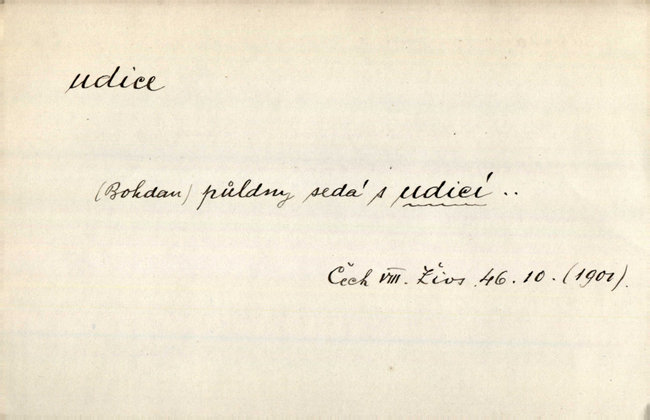 udice
(Bohdan) půldny sedá s udicí ..
Čech VIII. Živs 46. 10. (1901).